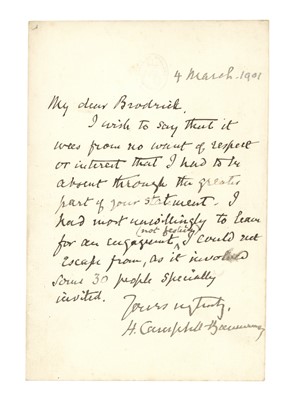 4 March. 1901
My dear Brodrick.
I wish to say that it
was from no want of respect
or interest that I had to be
absent through the greater
part of your statement. I
had most unwillingly to leave
(not festive)
for an engagement, I could not
escape from, as it involved
some 30 people specially
invited.
Yours
H. Campbell-Bannerman